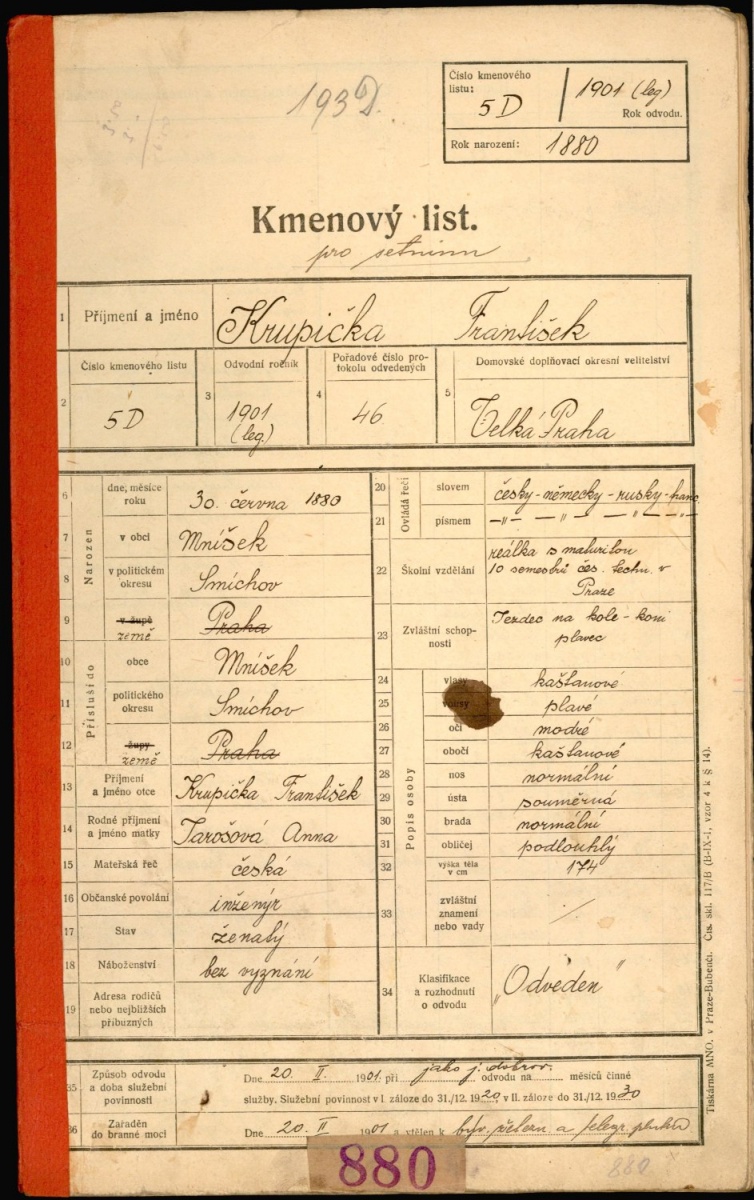 193D.
Číslo kmenového listu: 5D
1901 (leg) Rok odvodu.
Rok narození: 1880
Kmenový list.
pro setninu
1 Příjmení a jméno Krupička František
2 Číslo kmenového listu 5D
3 Odvodní ročník 1901 (leg.)
4 Pořadové číslo protokolu odvedených 46
5 Domovské doplňovací okresní velitelství Velká Praha
Narozen
6 dne, měsíce roku 30. června 1880
7 v obci Mníšek
8 v politickém okresu Smíchov
9 v župě země Praha
Přísluší do
10 obce Mníšek
11 politického okresu Smíchov
12 župy země Praha
13 Příjmení a jméno otce Krupička František
14 Rodné příjmení a jméno matky Jarošová Anna
15 Mateřská řeč česká
16 Občanské povolání inženýr
17 Stav ženatý
18 Náboženství bez vyznání
19 Adresa rodičů nebo nejbližších příbuzných
Ovládá řeči
20 slovem česky-německy-rusky-franc
21 písmem -„- -„- -„- -„-
22 Školní vzdělání reálka s maturitou
10 semestrů čes. techn. v
Praze
23 Zvláštní schopnosti Jezdec na kole-koni
plavec
Popis osoby
24 vlasy kaštanové
25 vousy plavé
26 oči modré
27 obočí kaštanové
28 nos normální
29 ústa souměrná
30 brada normální
31 obličej podlouhlý
32 výška těla v cm 174
33 zvláštní znamení nebo vady /
34 Klasifikace a rozhodnutí o odvodu „Odveden"
35 Způsob odvodu a doba služební povinnosti
Dne 20. II. 1901. při jako j. dobrov. odvodu na měsíců činné
služby. Služební povinnost v I. záloze do 31./12. 1920, v II. záloze do 31./12. 1930
36 Zařaděn do branné moci
Dne 20. II 1901 a vtělen k býv. železn. a telegr. pluku
880
880
Tiskárna MNO. v Praze-Bubenči. Čís. skl. 117/B (B-IX-1, vzor 4 k § 14).